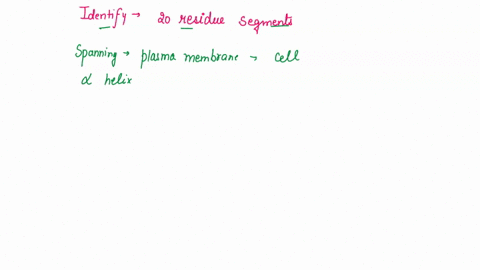 Identify → 20 residue segments
Spanning → plasma membrane → cell
α helix